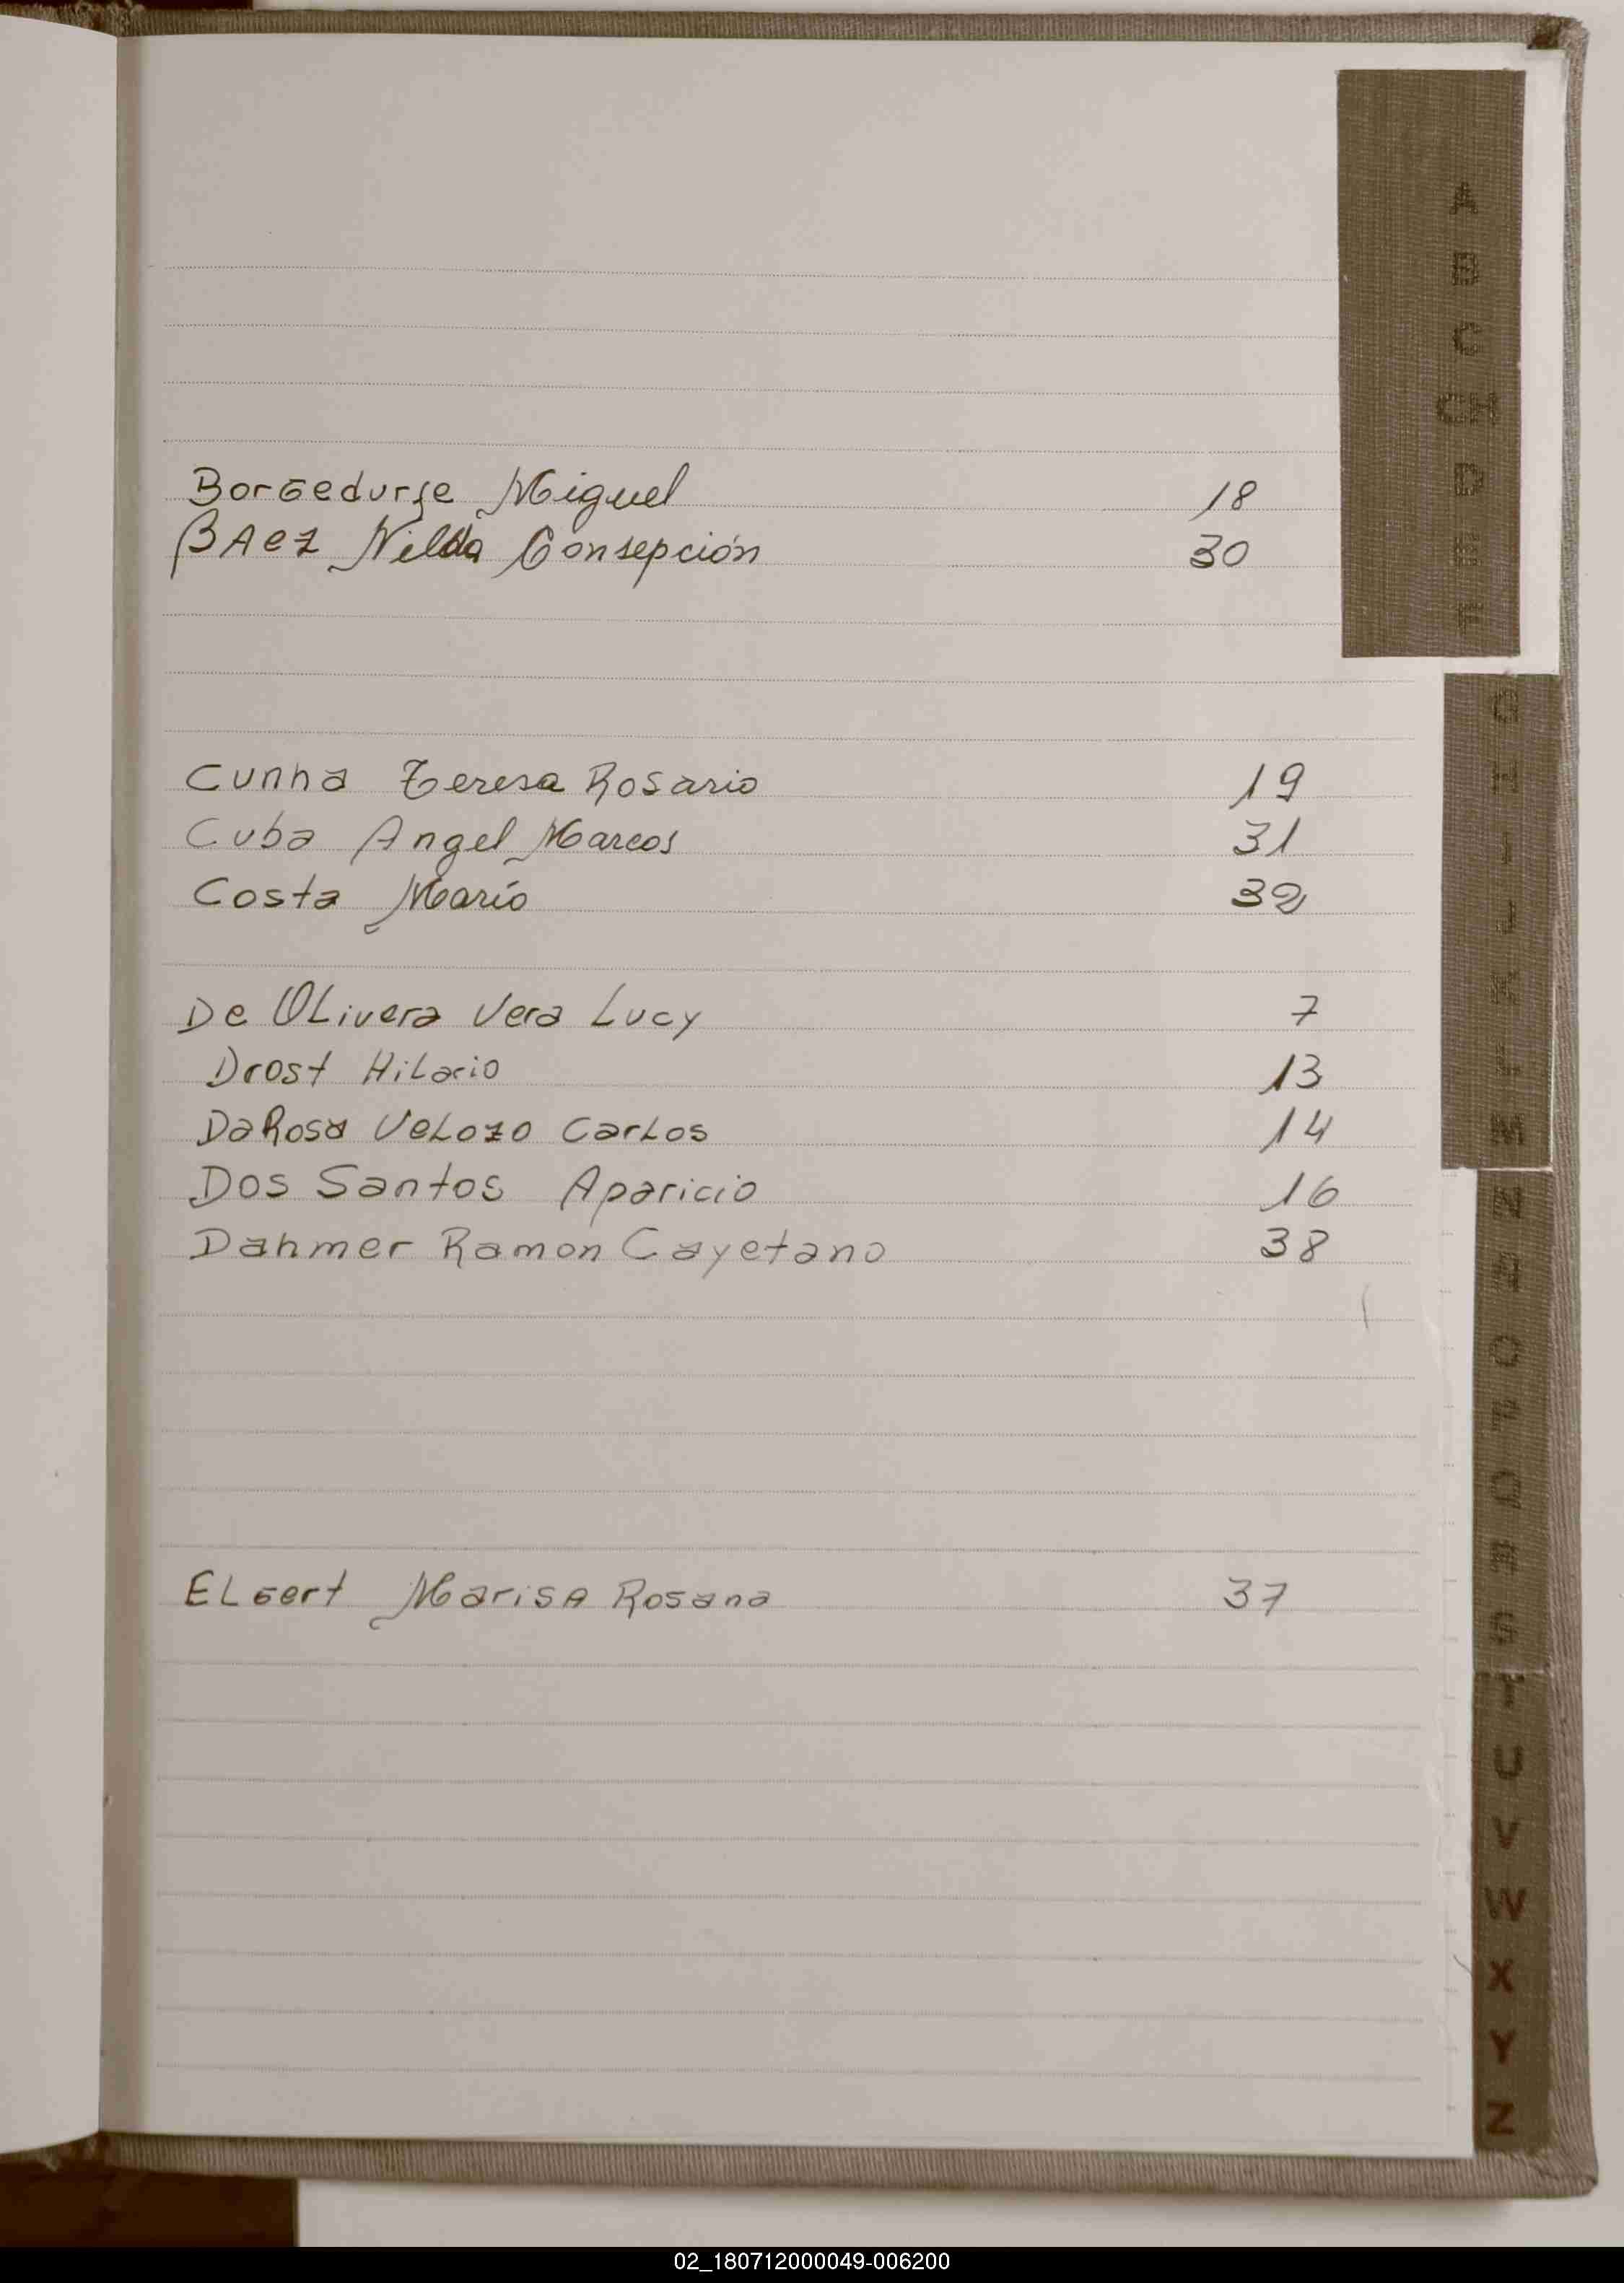 Borgedurse Miguel 18
BAez Nilda Consepción 30
Cunha Teresa Rosario 19
Cuba Angel Marcos 31
Costa Mario 32
De OLivera Vera Lucy 7
Drost HiLario 13
DaRosa VeLozo CarLos 14
Dos Santos Aparicio 16
Dahmer Ramon Cayetano 38
ELgert MarisA Rosana 37
A
B
C
CH
D
E
F
G
H
I
J
K
L
M
N
Ñ
O
P
Q
R
S
T
U
V
W
X
Y
Z
02_180712000049-006200